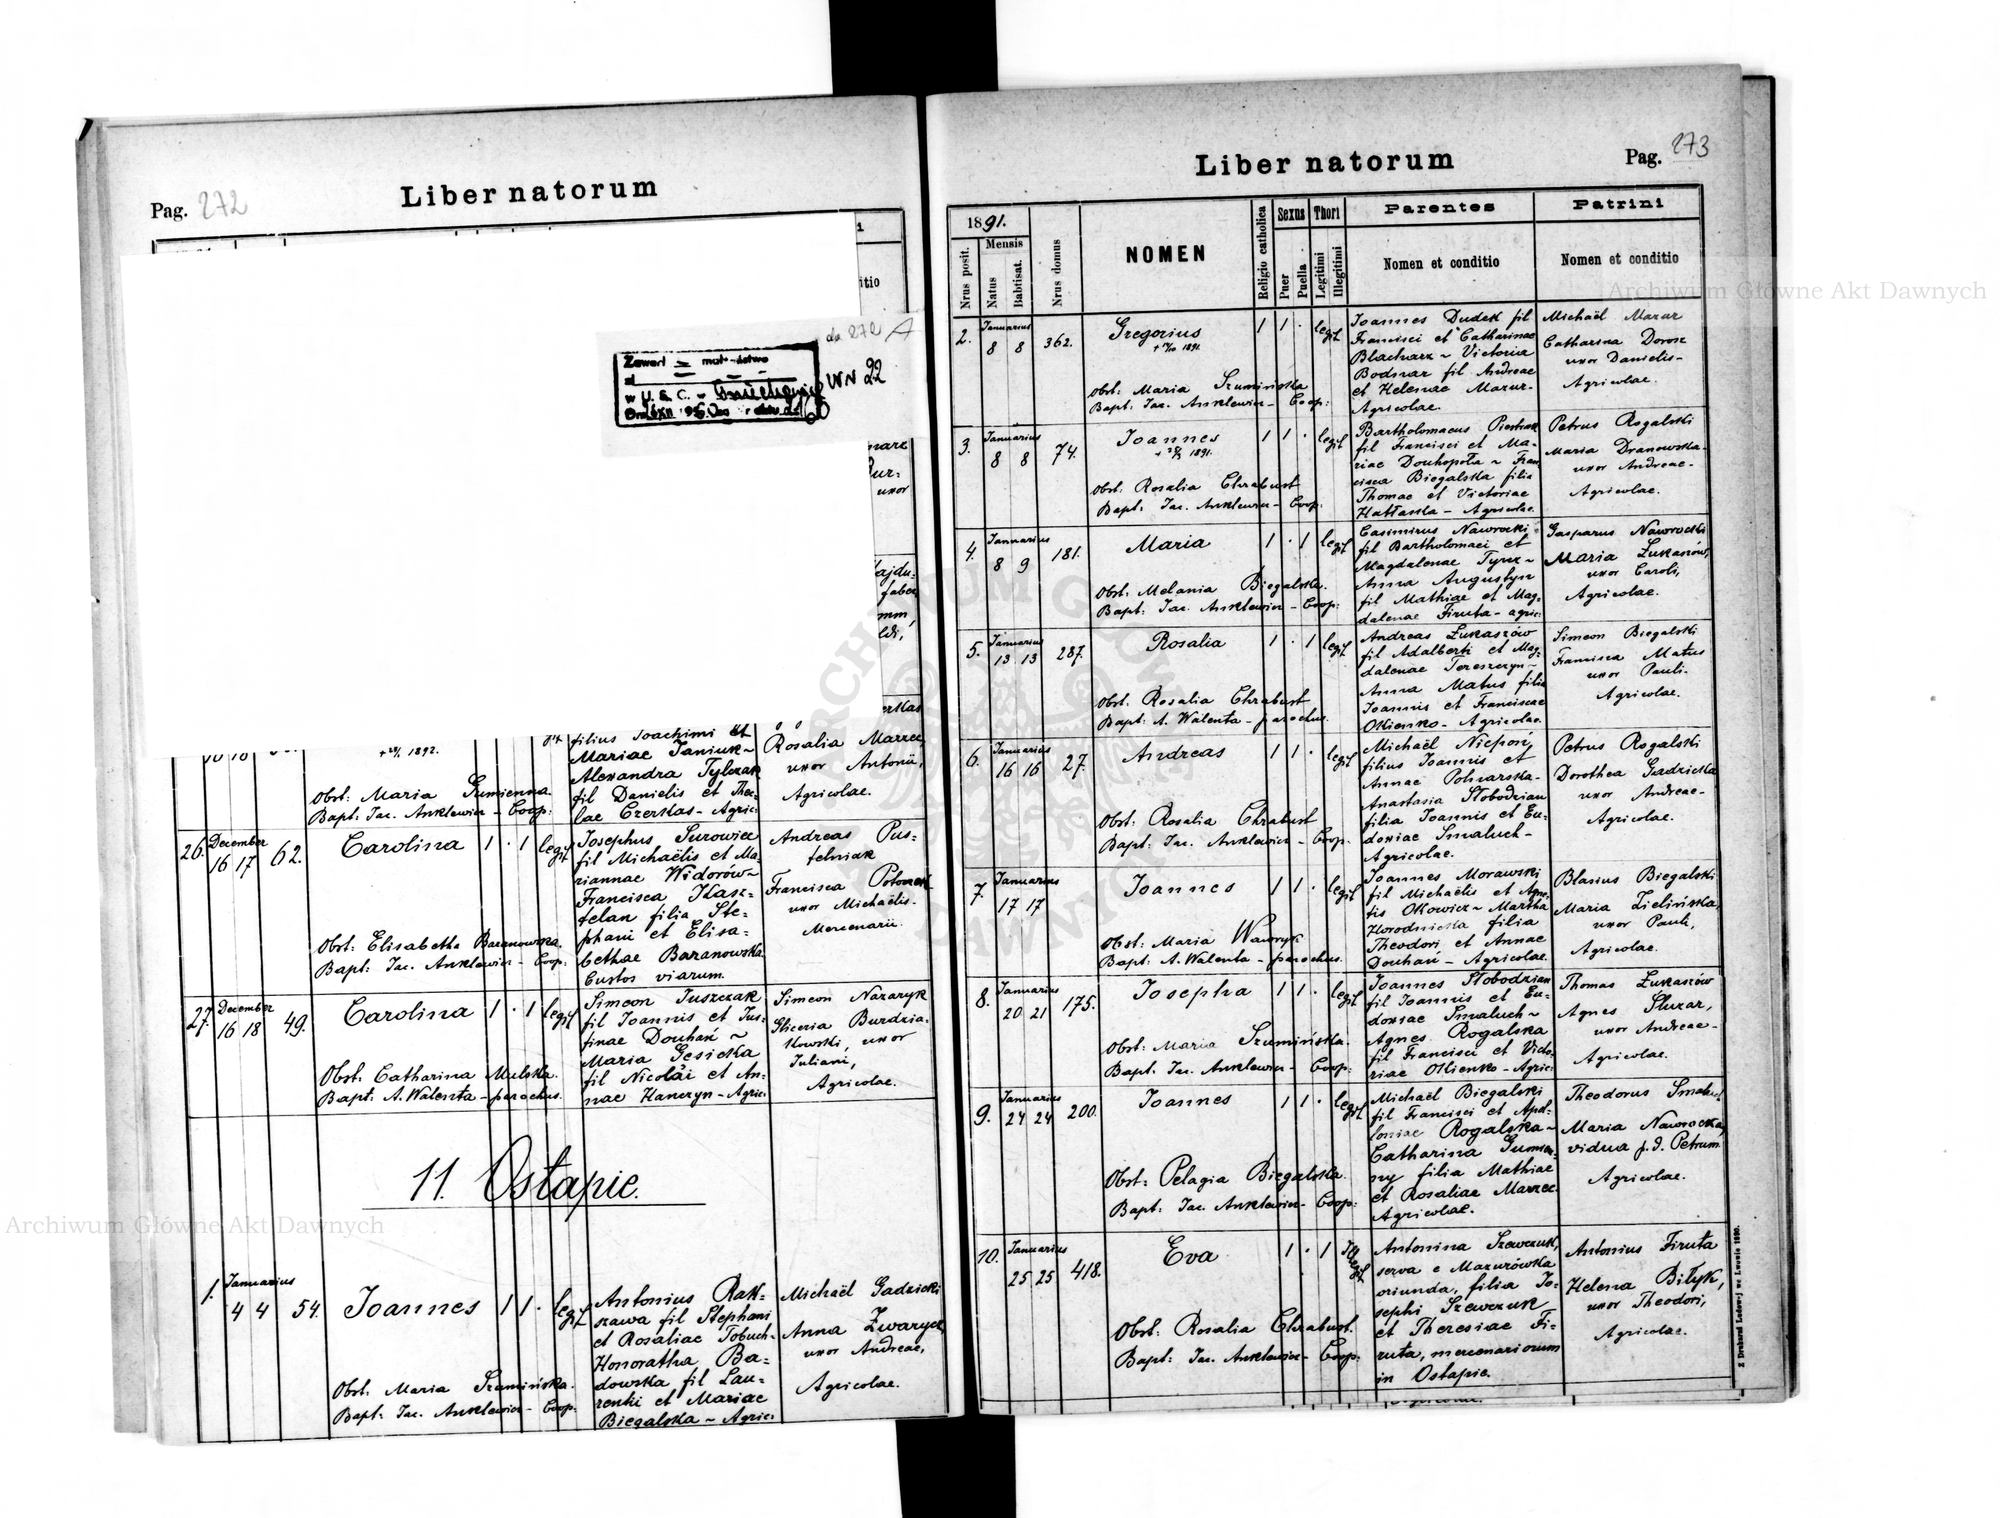 Pag. 272
Liber natorum
itio
do 272 A
WN 22
w U. S. C. w
+ 1892.
filius Joachimi et
Mariae Janiuk~
Alexandra Tylczak
fil Danielis et Thec=
lae Czerkas - Agric:
Rosalia Marzec
uxor Antonii,
Agricolae.
Obst: Maria Szumienna.
Bapt: Jac. Anklewicz - Coop:
26. December 16 17 62. Carolina 1 · 1 legit
Josephus Surowiec
fil Michaëlis et Ma=
riannae Widorów~
Francisca Kasz=
telan filia Ste=
phani et Elisa=
bethae Baranowska
Custos viarum.
Andreas Pus=
telniak
Francisca Potoczek
uxor Michaëlis.
Mercenarii.
Obst: Elisabetha Baranowska.
Bapt: Jac. Anklewicz - Coop:
27. December 16 18 49. Carolina 1 · 1 legit
Simeon Juszczak
fil Joannis et Jus=
tinae Douhań ~
Maria Gesicka
fil Nicolai et An=
nae Hanczyn - Agric:
Simeon Nazaryk
Gliceria Burdzia=
kowski, uxor
Juliani,
Agricolae.
Obst: Catharina Mulska.
Bapt: A. Walenta - parochus.
11. Ostapie.
1. Januarius 4 4 54. Joannes 1 1 · legit
Antonius Rak=
szawa fil Stephani
et Rosaliae Tobuch~
Honoratha Ba=
dowska fil Lau=
rentii et Mariae
Biegalska ~ Agric:
Michaël Gadzicki
Anna Zwarycz,
uxor Andreae,
Agricolae.
Obst: Maria Szumińska.
Bapt: Jac. Anklewicz - Coop:
Liber natorum
Pag. 273
1891.
Nrus posit.
Mensis
Natus
Babtisat.
Nrus domus
NOMEN
Religio catholica
Sexus
Puer
Puella
Thori
Legitimi
Illegitimi
Parentes
Nomen et conditio
Patrini
Nomen et conditio
2. Januarius 8 8 362. Gregorius 1 1 · legit
Joannes Dudek fil
Francisci et Catharinae
Blacharz ~ Victoria
Bodnar fil Andreae
et Helenae Mazur-
Agricolae.
Michaël Mazur
Catharina Dorosz
uxor Danielis-
Agricolae.
Obst: Maria Szumińska
Bapt: Jac. Anklewicz - Coop:
3. Januarius 8 8 74. Joannes 1 1 · legit
Bartholomaeus Piestrak
fil Francisci et Ma=
riae Douhopoła ~ Fran=
cisca Biegalska filia
Thomae et Victoriae
Hattaska - Agricolae.
Petrus Rogalski
Maria Dranowska-
uxor Andreae-
Agricolae.
Obst: Rosalia Chrabust
Bapt: Jac. Anklewicz - Coop:
4. Januarius 8 9 181. Maria 1 · 1 legit
Casimirus Nawrocki
fil Bartholomaei et
Magdalenae Tyrcz~
Anna Augustyn
fil Mathiae et Mag=
dalenae Firuta - agric:
Gasparus Nawrocki
Maria Łukaszów,
uxor Caroli,
Agricolae.
Obst: Melania Biegalska.
Bapt: Jac. Anklewicz - Coop:
5. Januarius 13 13 287. Rosalia 1 · 1 legit
Andreas Łukaszów
fil Adalberti et Mag=
dalenae Tereszczyn~
Anna Matus filia
Joannis et Franciscae
Okienko - Agricolae.
Simeon Biegalski
Francisca Matus
uxor Pauli-
Agricolae.
Obst: Rosalia Chrabust
Bapt: A. Walenta - parochus.
6. Januarius 16 16 27. Andreas 1 1 · legit
Michaël Niepoń,
filius Joannis et
Annae Polnarska-
Anastasia Słobodzian
filia Joannis et Eu=
doxiae Smaluch-
Agricolae.
Petrus Rogalski
Dorothea Gadzicka
uxor Andreae-
Agricolae.
Obst: Rosalia Chrabust
Bapt: Jac. Anklewicz - Coop.
7. Januarius 17 17 Joannes 1 1 · legit
Joannes Morawski
fil Michaëlis et Agne=
tis Okowicz ~ Martha
Horodnicka filia
Theodori et Annae
Douhań - Agricolae.
Blasius Biegalski
Maria Zielińska,
uxor Pauli,
Agricolae.
Obst: Maria Wawryk
Bapt: A. Walenta - parochus.
8. Januarius 20 21 175. Josepha 1 1 · legit
Joannes Słobodzian
fil Joannis et Eu=
doxiae Smaluch~
Agnes Rogalska
fil Francisci et Victo=
riae Okienko - Agric:
Thomas Łukaszów
Agnes Sluzar,
uxor Andreae-
Agricolae.
Obst: Maria Szumińska.
Bapt: Jac. Anklewicz - Coop:
9. Januarius 24 24 200. Joannes 1 1 · legit
Michaël Biegalski
fil Francisci et Apol=
loniae Rogalska-
Catharina Gumien=
ny filia Mathiae
et Rosaliae Marzec.
Agricolae.
Theodorus Smaluch
Maria Nawrocka,
vidua p. d. Petrum
Agricolae.
Obst: Pelagia Biegalska
Bapt: Jac. Anklewicz - Coop:
10. Januarius 25 25 418. Eva 1 · 1 Illegit
Antonina Szewczuk,
serva e Mazurówka
oriunda, filia Jo=
sephi Szewczuk
et Theresiae Fi=
ruta, mercenariorum
in Ostapie.
Antonius Firuta
Helena Biłyk,
uxor Theodori,
Agricolae.
Obst: Rosalia Chrabust.
Bapt: Jac. Anklewicz - Coop:
Z Drukarni Ludowej we Lwowie 1890.
Archiwum Główne Akt Dawnych
Archiwum Główne Akt Dawnych
ARCHIWUM GŁÓWNE AKT DAWNYCH